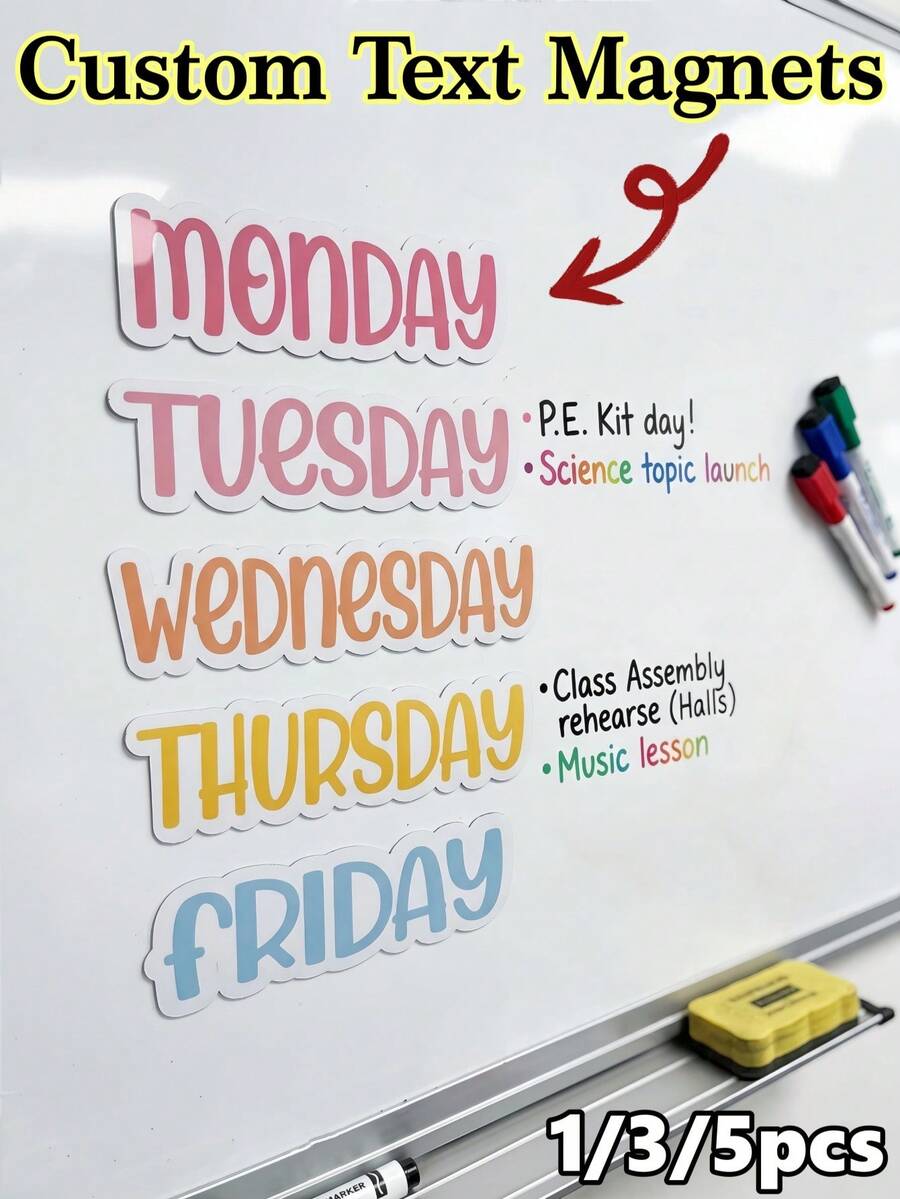 Custom Text Magnets
MONDAY
TUESDAY
• P.E. Kit day!
• Science topic launch
WEDNESDAY
THURSDAY
• Class Assembly
rehearse (Halls)
• Music lesson
FRIDAY
MARKER
1/3/5pcs